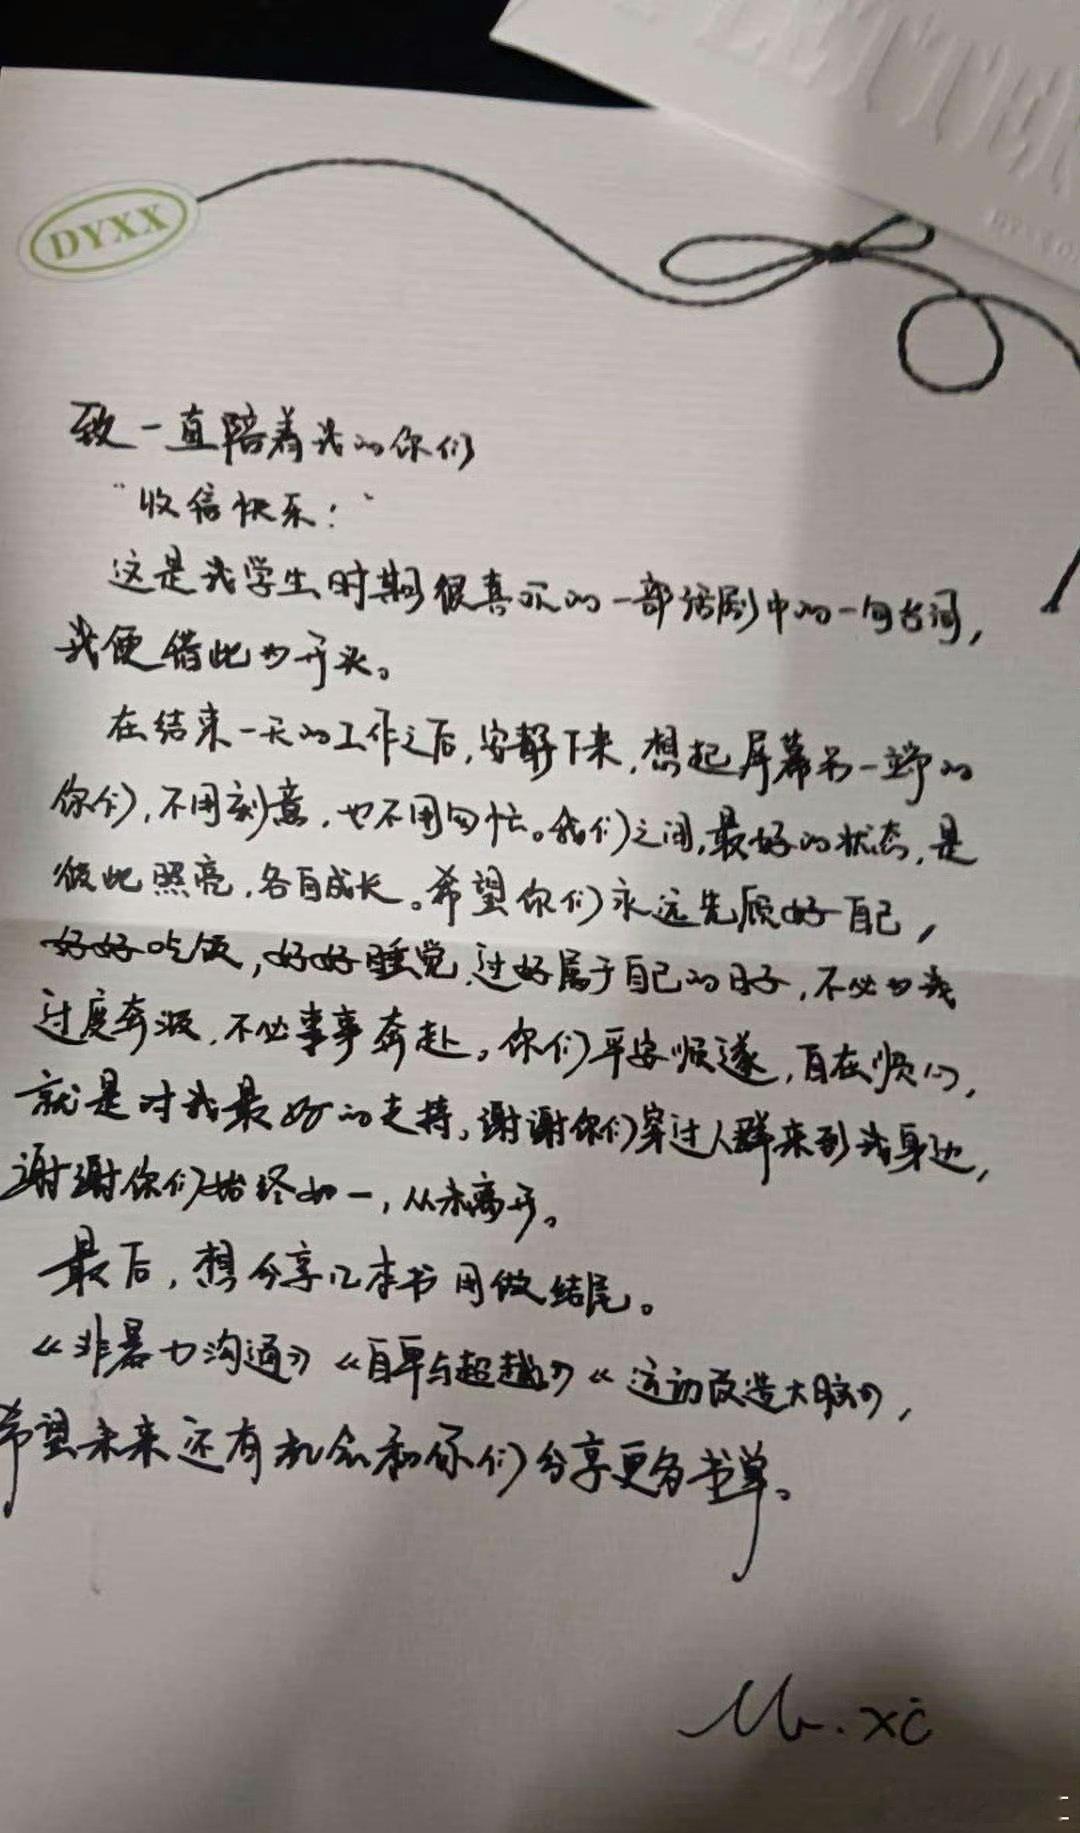 LETTER
DYXX
致一直陪着我的你们
“收信快乐！”
这是我学生时期很喜欢的一部话剧中的一句台词，
我便借此为开头。
在结束一天的工作之后，安静下来，想起屏幕另一端的
你们，不用刻意，也不用匆忙。我们之间，最好的状态，是
彼此照亮，各自成长。希望你们永远先顾好自己，
好好吃饭，好好睡觉，过好属于自己的日子，不必为我
过度奔波，不必事事奔赴。你们平安顺遂，自在顺心，
就是对我最好的支持。谢谢你们穿过人群来到我身边，
谢谢你们始终如一，从未离开。
最后，想分享几本书用做结尾。
《非暴力沟通》《自卑与超越》《运动改造大脑》，
希望未来还有机会和你们分享更多书单。
Mr. xc